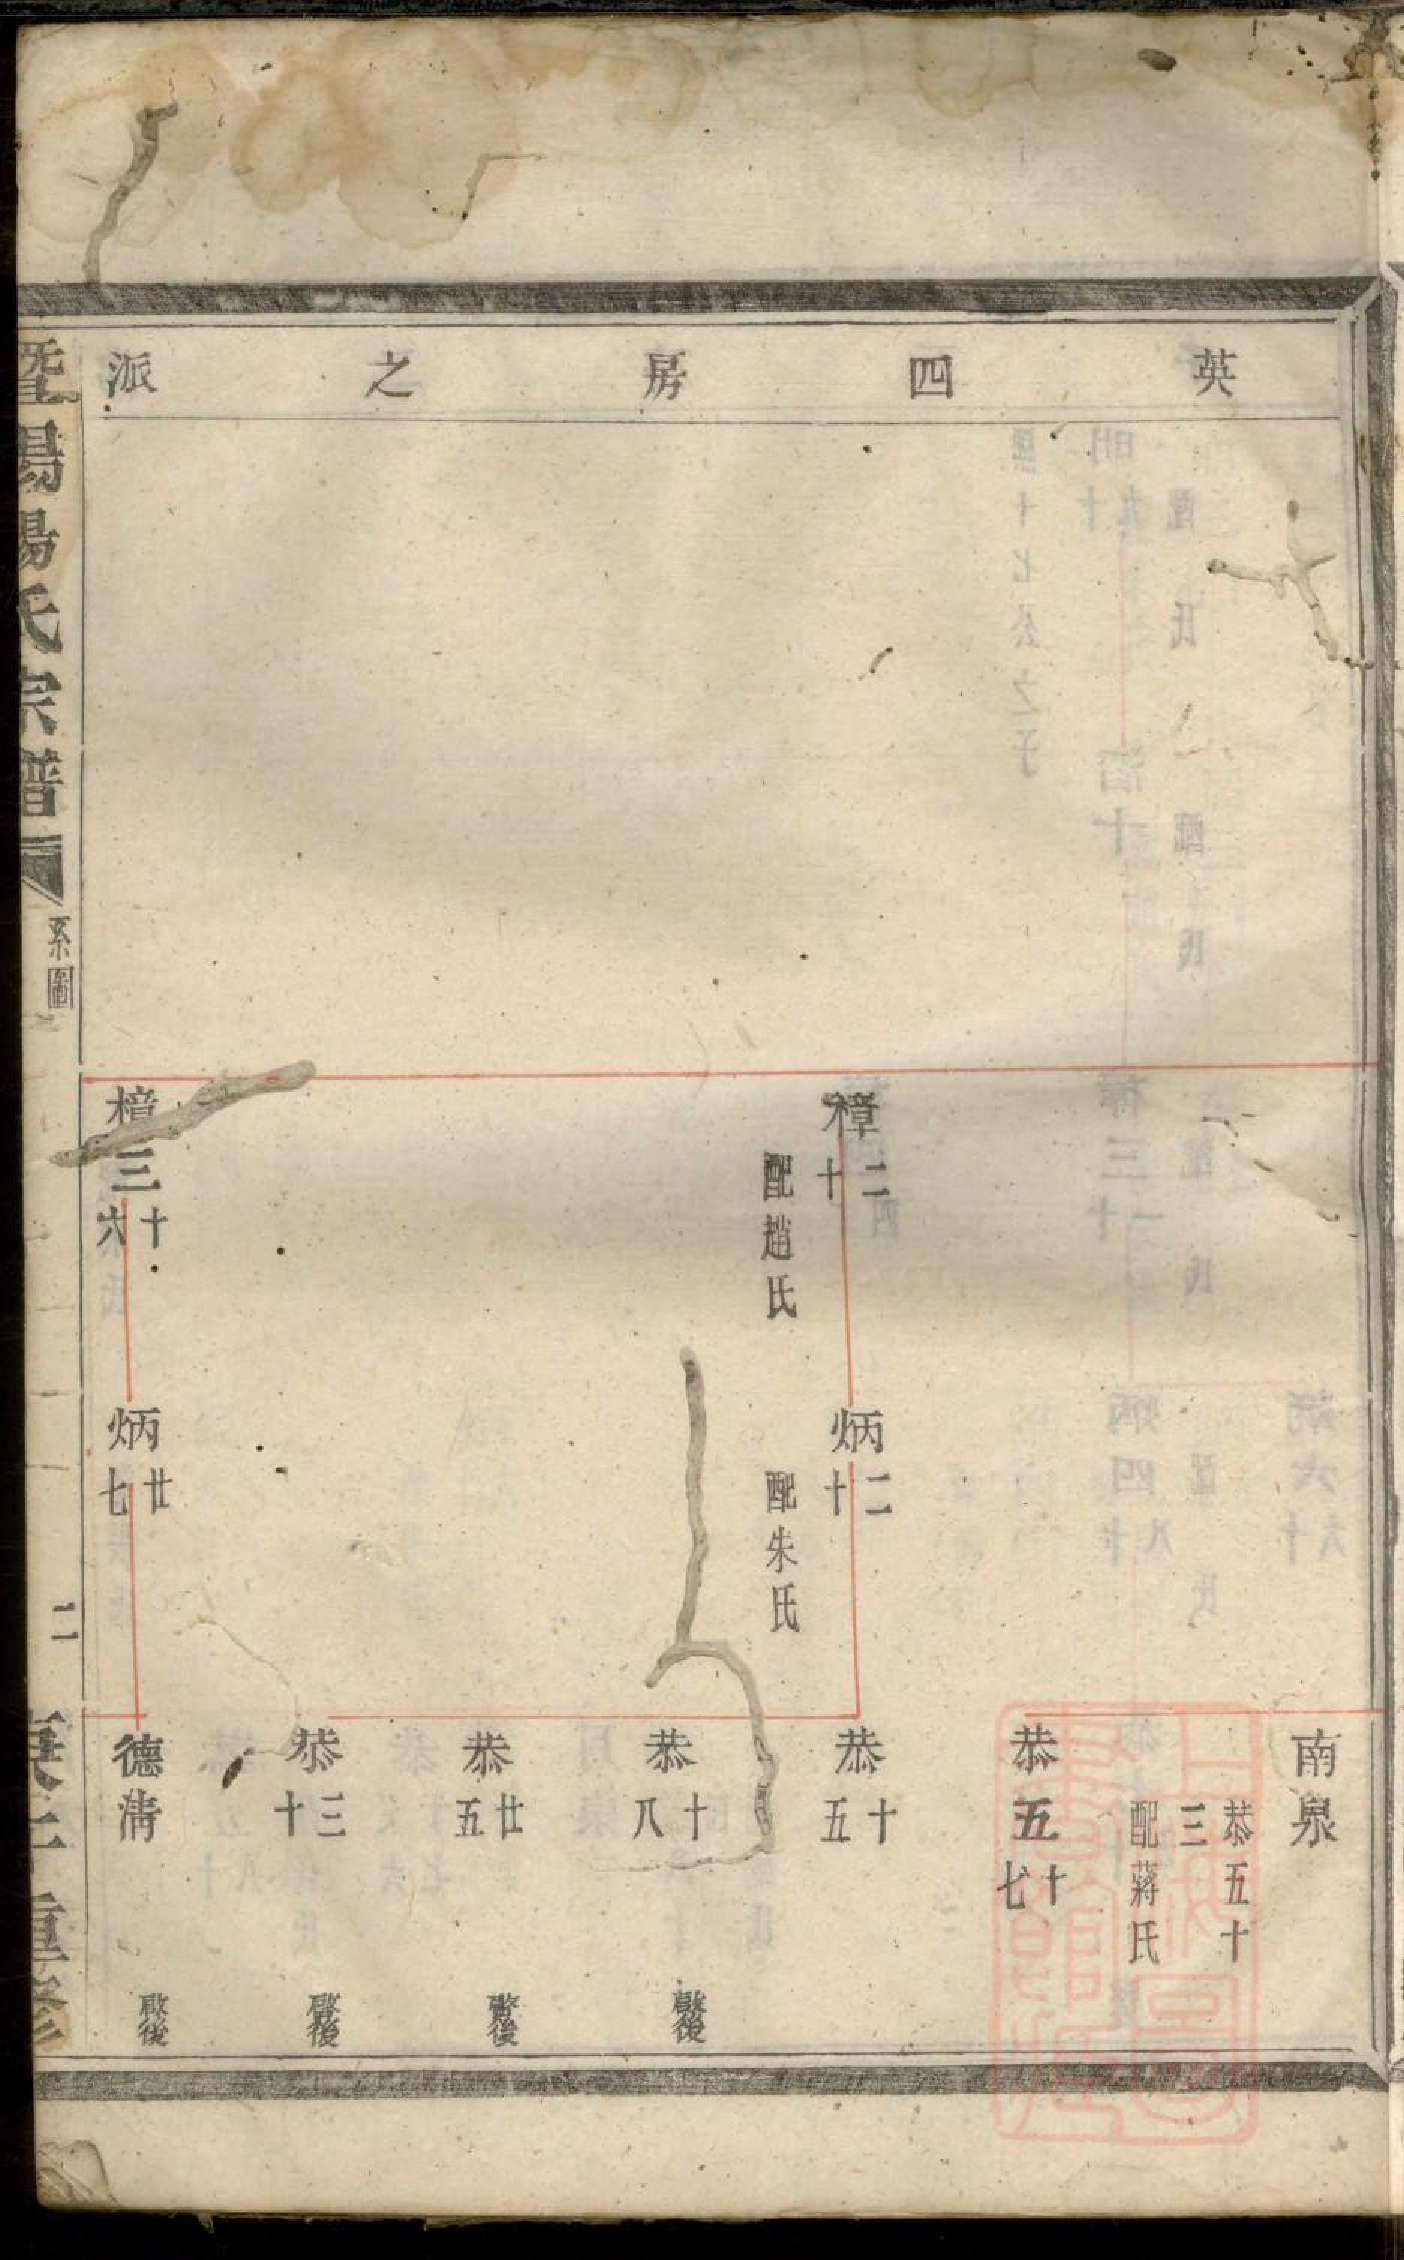 英四房之派
南泉
恭五十三
配蔣氏
恭五十七
樟二十
配趙氏
炳二十
配朱氏
恭十五
恭十八
啟後
恭廿五
啟後
恭三十
啟後
樟三十六
炳廿七
德清
啟後
暨陽楊氏宗譜
系圖
二
重修